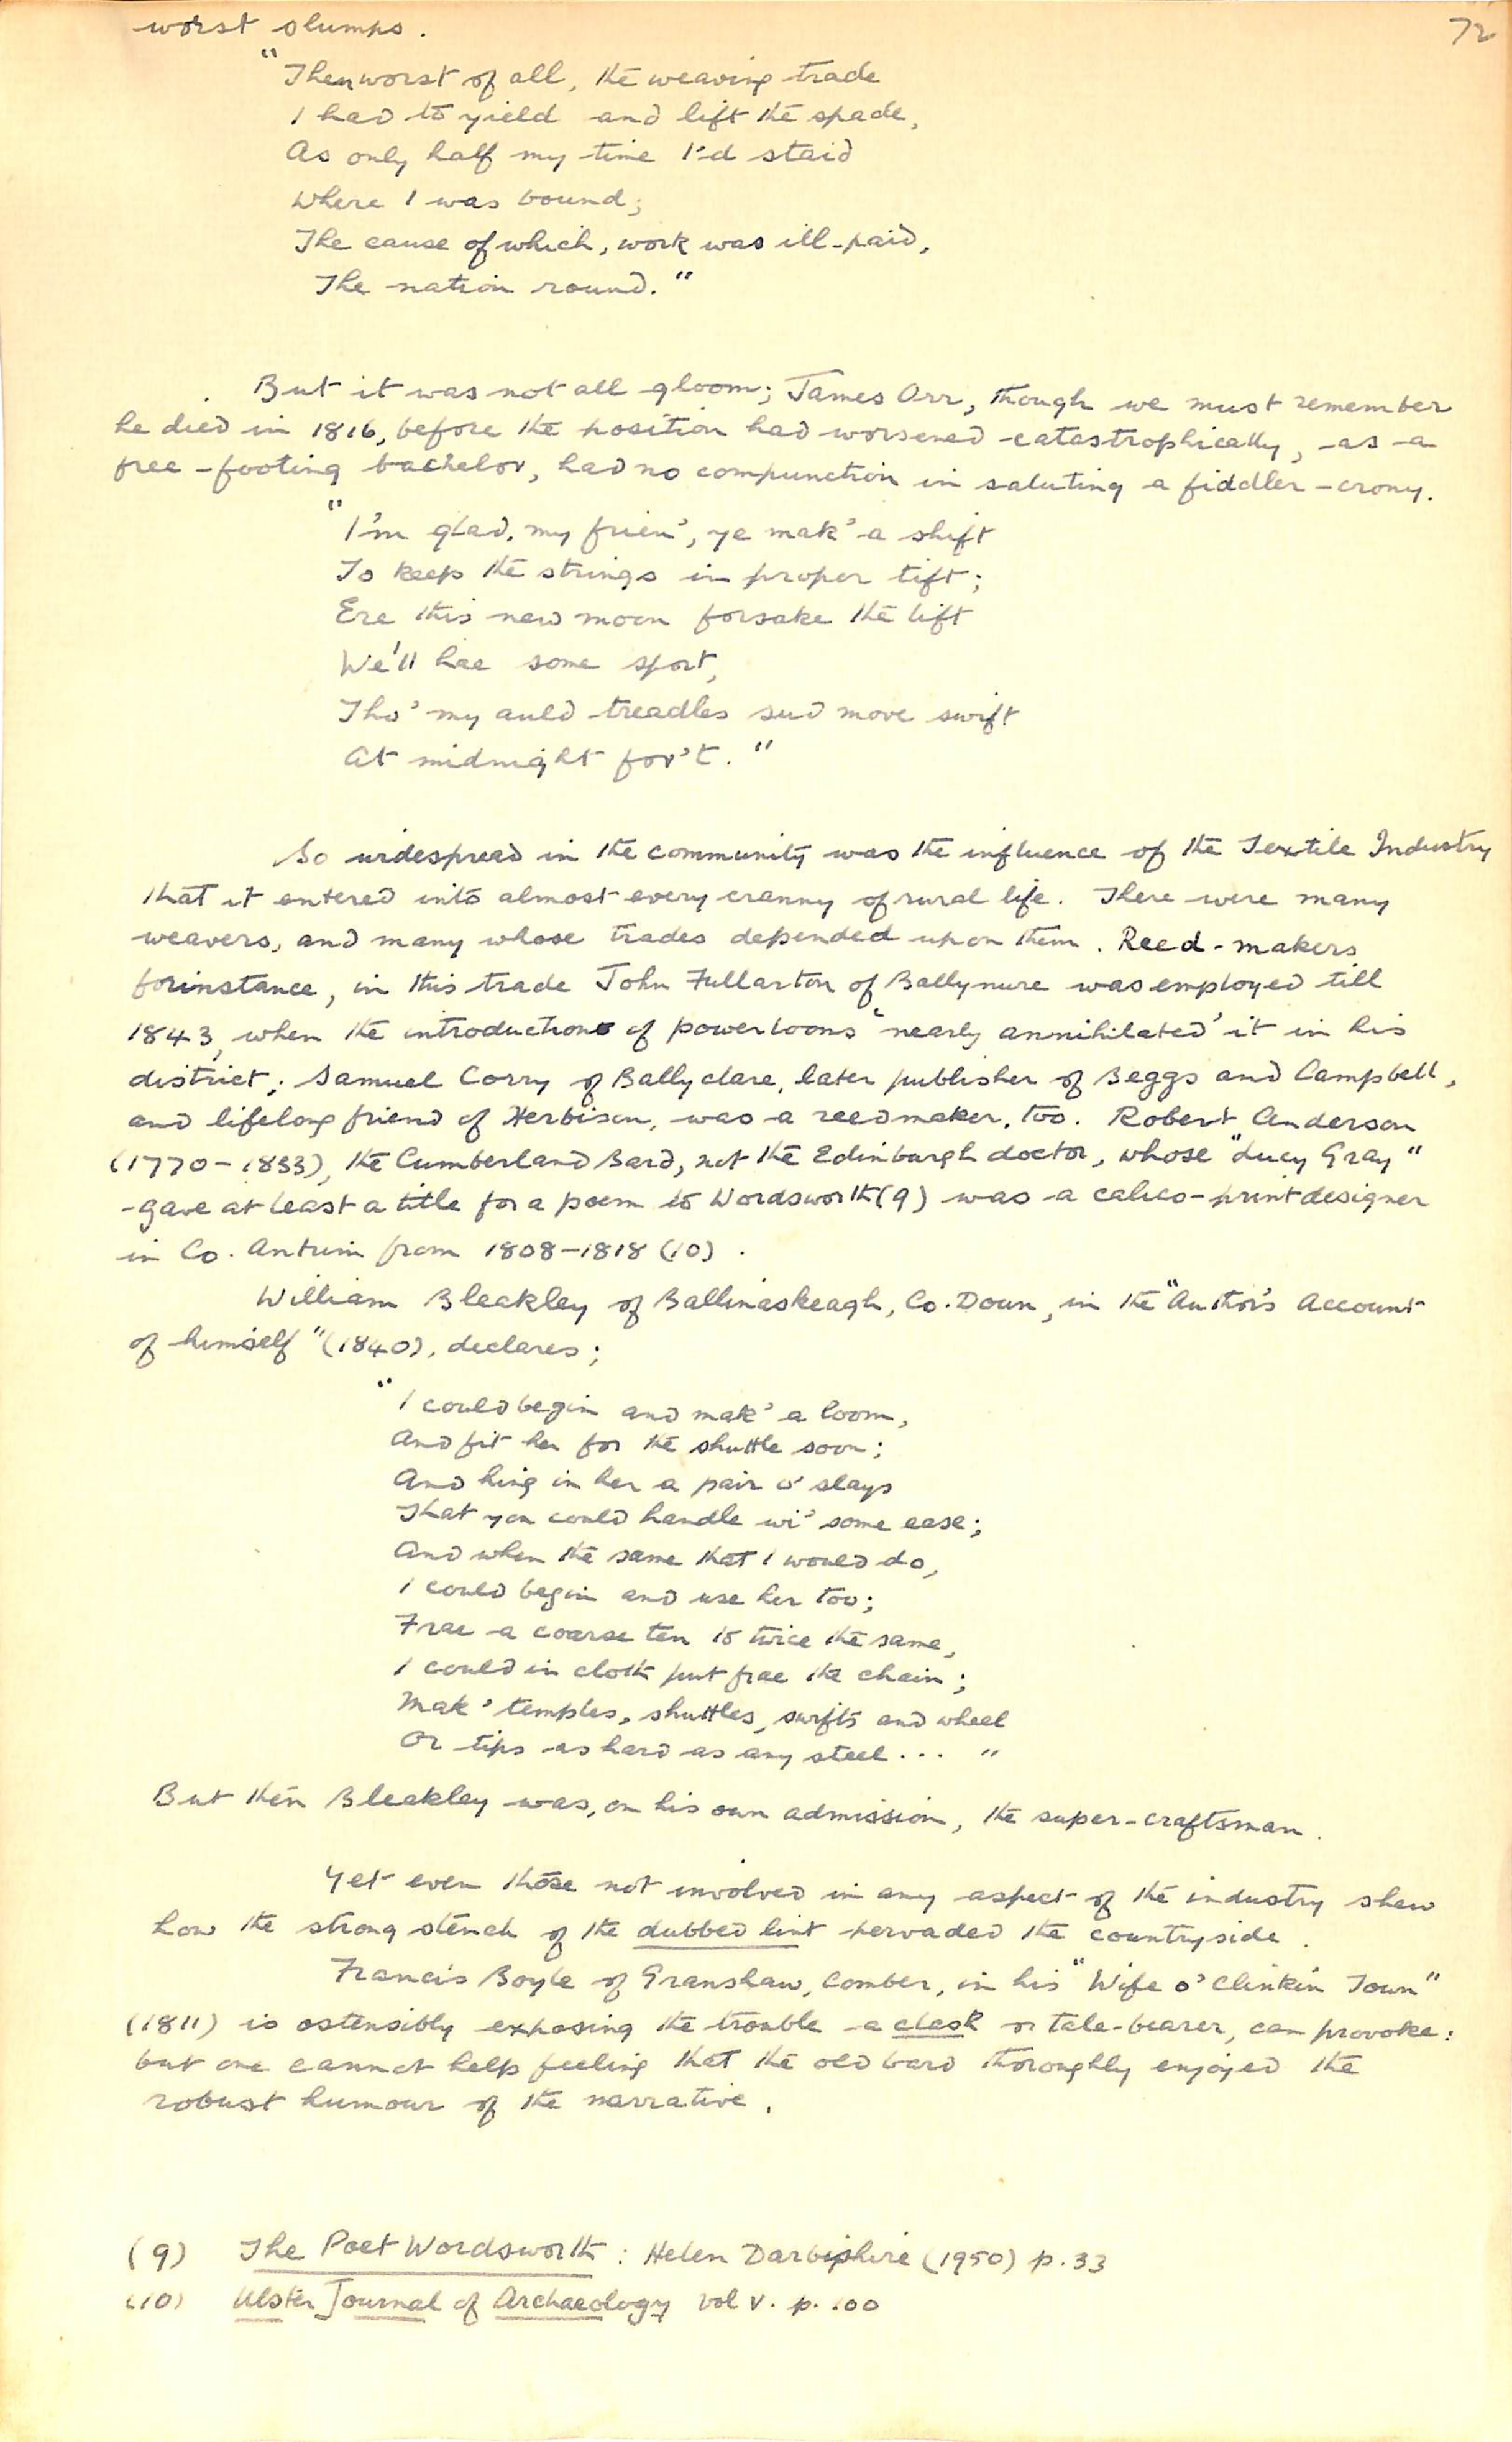 72
worst slumps.
"Then worst of all, the weaving trade
I had to yield and lift the spade,
As only half my time I'd staid
Where I was bound;
The cause of which, work was ill-paid,
The nation round."
But it was not all gloom; James Orr, though we must remember
he died in 1816, before the position had worsened catastrophically, as a
free-footing bachelor, had no compunction in saluting a fiddler-crony.
"I'm glad, my frien', ye mak' a shift
To keep the strings in proper tift;
Ere this new moon forsake the lift
We'll hae some sport,
Tho' my auld treadles sud move swift
At midnight for't."
So widespread in the community was the influence of the Textile Industry
that it entered into almost every cranny of rural life. There were many
weavers, and many whose trades depended upon them. Reed-makers
forinstance, in this trade John Fullarton of Ballynure was employed till
1843, when the introduction of powerlooms 'nearly annihilated' it in his
district; Samuel Corry of Ballyclare, later publisher of Beggs and Campbell,
and lifelong friend of Herbison, was a reedmaker, too. Robert Anderson
(1770-1833), the Cumberland Bard, not the Edinburgh doctor, whose "Lucy Gray"
gave at least a title for a poem to Wordsworth (9) was a calico-print designer
in Co. Antrim from 1808-1818 (10).
William Bleakley of Ballinaskeagh, Co. Down, in the "Author's Account
of himself" (1840), declares;
"I could begin and mak' a loom,
And fit her for the shuttle soon;
And hing in her a pair o' slays
That you could handle wi' some ease;
And when the same that I would do,
I could begin and use her too;
Frae a coarse ten to twice the same,
I could in cloth put frae the chain;
Mak' temples, shuttles, swifts and wheel
Or tips as hard as any steel... "
But then Bleakley was, on his own admission, the super-craftsman.
Yet even those not involved in any aspect of the industry shew
how the strong stench of the dubbed lint pervaded the countryside.
Francis Boyle of Granshaw, Comber, in his "Wife o' Clinkin Town"
(1811) is ostensibly exposing the trouble a clash or tale-bearer, can provoke:
but one cannot help feeling that the old bard thoroughly enjoyed the
robust humour of the narrative.
(9) The Poet Wordsworth: Helen Darbishire (1950) p. 33
(10) Ulster Journal of Archaeology vol V. p. 100